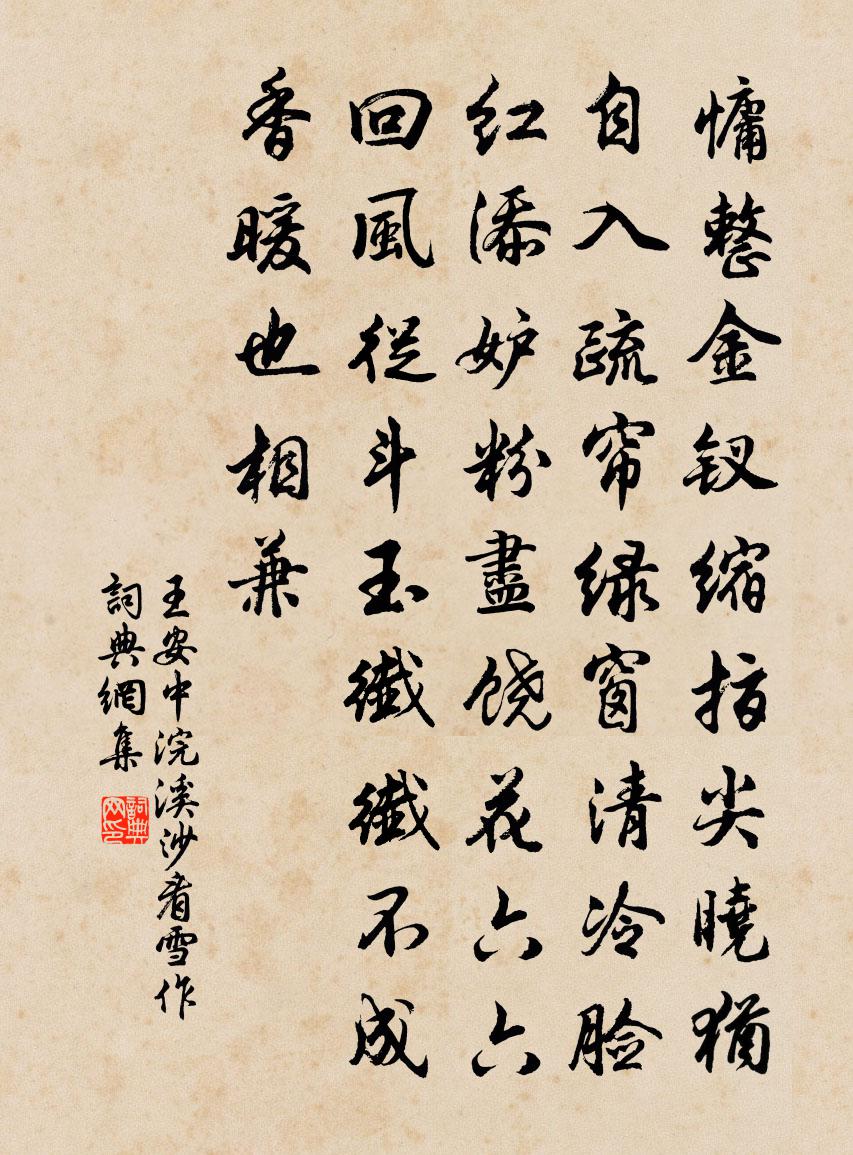 慵整金钗缩指尖曉猶
自入疏帘绿窗清冷脸
红添妒粉盡饶花六六
回風從斗玉纖纖不成
香暖也相兼
王安中浣溪沙看雪作
詞典網集
詞典网印